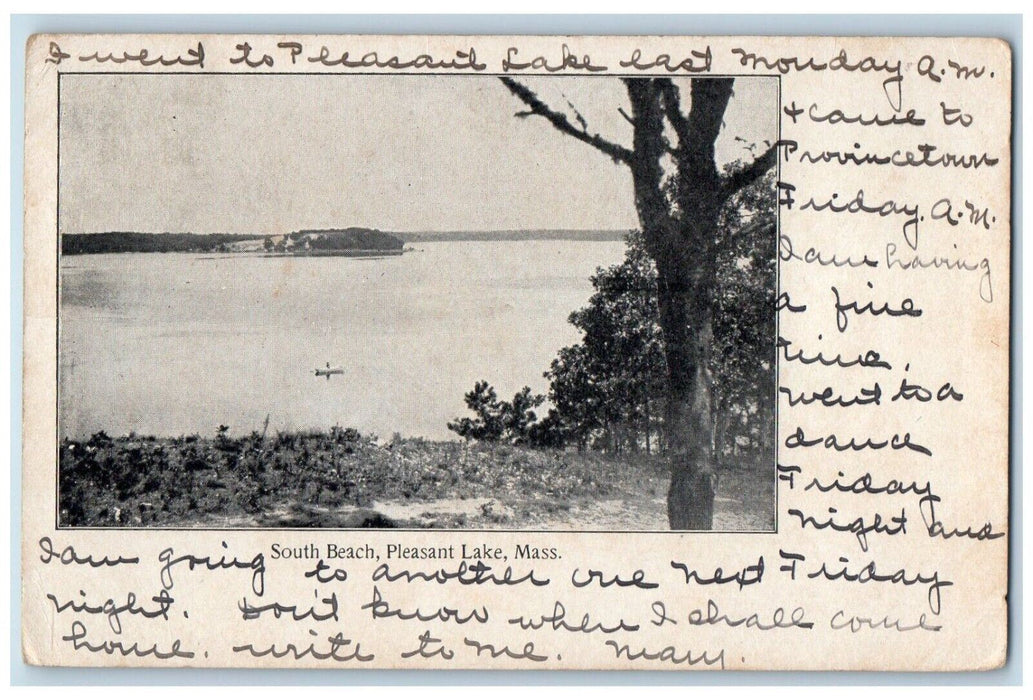 I went to Pleasant Lake last Monday A.M.
+ came to
Provincetown
Friday. A.M.
I am having
a fine
time.
went to a
dance
Friday
night and
South Beach, Pleasant Lake, Mass.
I am going to another one next Friday
night. Don't know when I shall come
home. write to me. Mary.